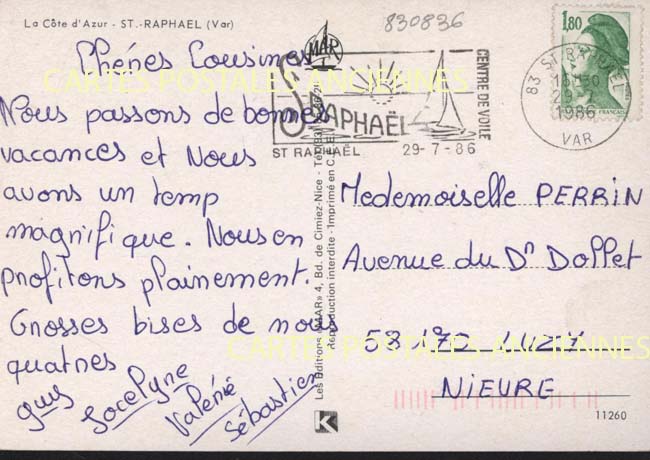 La Côte d'Azur - ST.-RAPHAEL (Var)
830836
Chéres Cousines
Nous passons de bonnes
vacances et Nous
avons un temp
magnifique. Nous en
profitons plainement.
Grosses bises de nous
quatres
guy
Jocelyne
Valérie
Sébastien
MAR
ST RAPHAËL
CENTRE DE VOILE
ST RAPHAËL 29-7-86
1,80
83 ST RAPHAEL
1986
VAR
Medemoiselle PERRIN
Avenue du Dr Dollet
58 170 LUZY
NIEURE
Les Editions «MAR» 4, Bd. de Cimiez-Nice - Tél.
Reproduction interdite - Imprimé en C.E.E.
K
11260
CARTES POSTALES ANCIENNES
CARTES POSTALES ANCIENNES